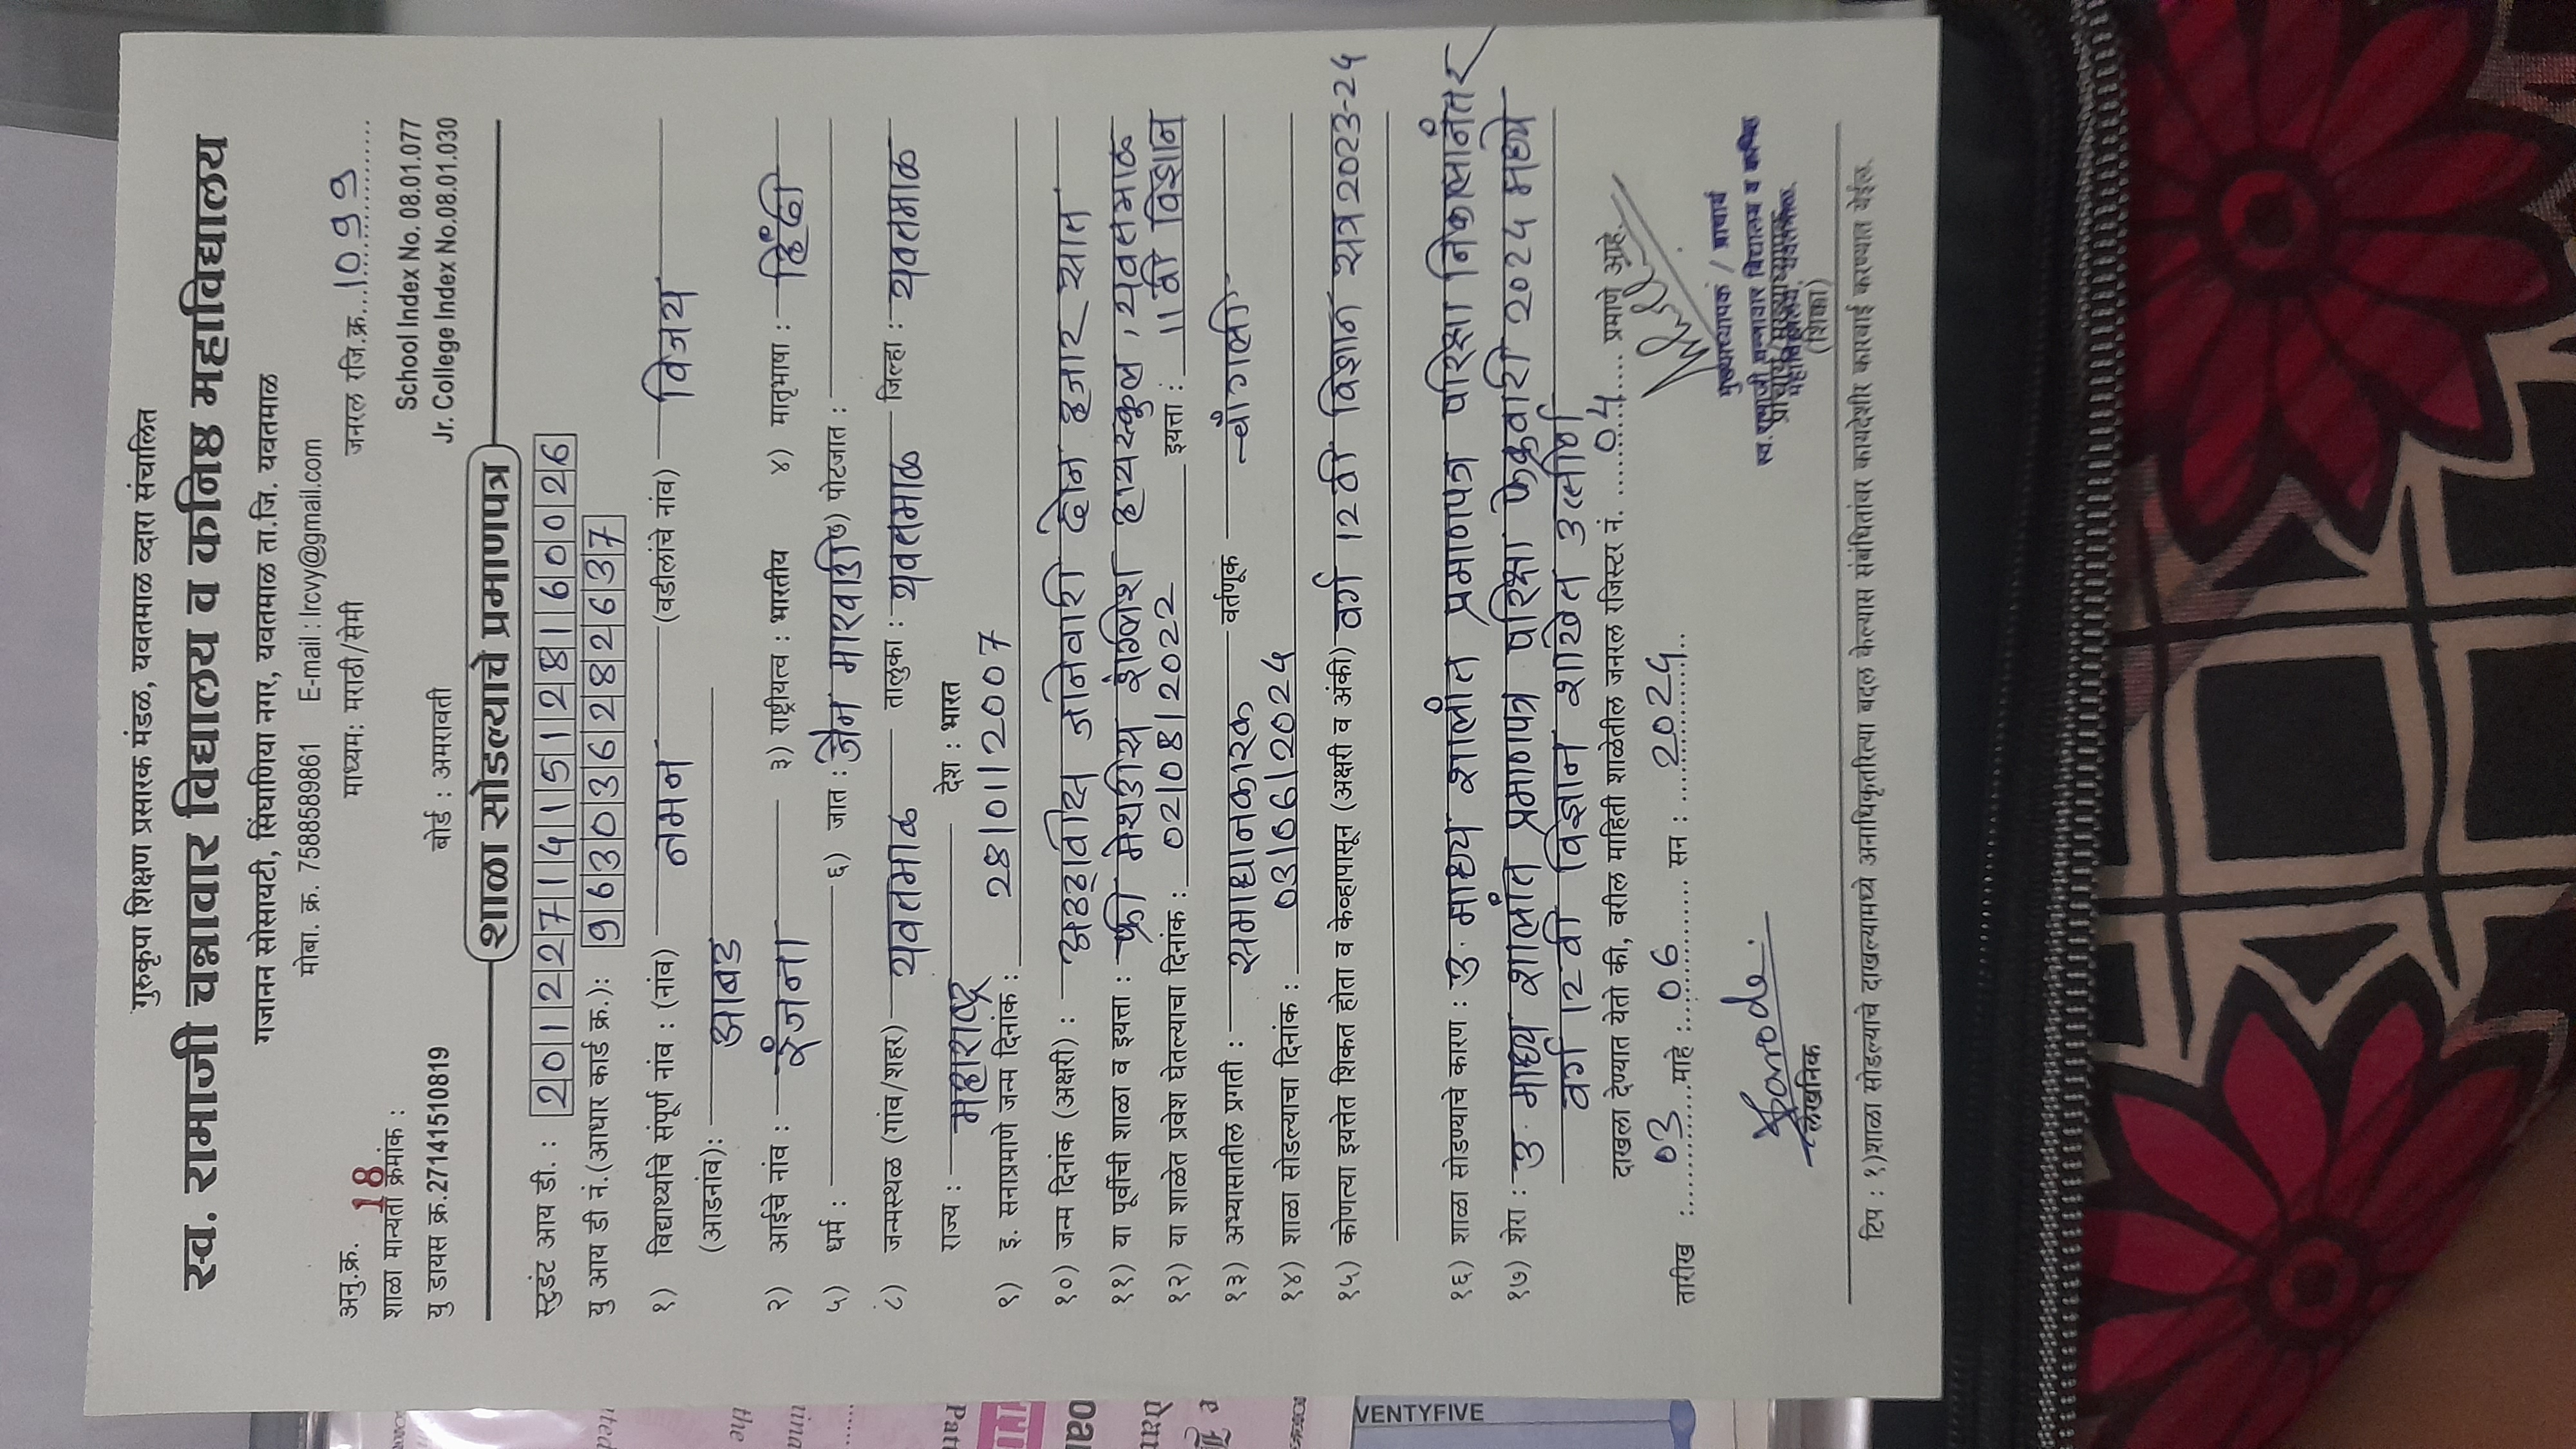 गुरुकृपा शिक्षण प्रसारक मंडळ, यवतमाळ व्दारा संचालित
स्व. रामाजी चन्नावार विद्यालय व कनिष्ठ महाविद्यालय
गजानन सोसायटी, सिंघाणिया नगर, यवतमाळ ता.जि. यवतमाळ
मोबा. क्र. 7588589861 E-mail : lrcvy@gmail.com
अनु.क्र. 18 माध्यम: मराठी/सेमी जनरल रजि.क्र...1099
शाळा मान्यता क्रमांक : School Index No. 08.01.077
यु डायस क्र.27141510819 बोर्ड : अमरावती Jr. College Index No.08.01.030
शाळा सोडल्याचे प्रमाणपत्र
स्टुडंट आय डी. : 2012271415128160026
यु आय डी नं.(आधार कार्ड क्र.): 963036282637
१) विद्यार्थ्याचे संपूर्ण नांव : (नांव) नमन (वडीलांचे नांव) विजय
(आडनांव): आबड
२) आईचे नांव : रंजना ३) राष्ट्रीयत्व : भारतीय ४) मातृभाषा : हिंदी
५) धर्म : ६) जात : जैन मारवाडी ७) पोटजात :
८) जन्मस्थळ (गांव/शहर) यवतमाळ तालुका : यवतमाळ जिल्हा : यवतमाळ
राज्य : महाराष्ट्र देश : भारत
९) इ. सनाप्रमाणे जन्म दिनांक : 28/01/2007
१०) जन्म दिनांक (अक्षरी) : अठ्ठावीस जानेवारी दोन हजार सात
११) या पूर्वीची शाळा व इयत्ता : फ्री मेथडीस्ट इंग्लिश हायस्कुल, यवतमाळ
१२) या शाळेत प्रवेश घेतल्याचा दिनांक : 02/08/2022 इयत्ता : 11 वी विज्ञान
१३) अभ्यासातील प्रगती : समाधानकारक वर्तणूक चांगली
१४) शाळा सोडल्याचा दिनांक : 03/06/2024
१५) कोणत्या इयत्तेत शिकत होता व केव्हापासून (अक्षरी व अंकी) वर्ग 12 वी विज्ञान सत्र 2023-24
१६) शाळा सोडण्याचे कारण : उ. माध्य शालांत प्रमाणपत्र परिक्षा निकालानंतर
१७) शेरा : उ. माध्य शालांत प्रमाणपत्र परिक्षा फेब्रुवारी 2024 मध्ये
वर्ग 12 वी विज्ञान शाखेत उत्तीर्ण
दाखला देण्यात येतो की, वरील माहिती शाळेतील जनरल रजिस्टर नं. 04 प्रमाणे आहे.
तारीख : 03 माहे : 06 सन : 2024
मुख्याध्यापक / प्राचार्य
स्व. रामाजी चन्नावार विद्यालय व कनिष्ठ
महाविद्यालय, यवतमाळ.
(शिक्का)
लेखनिक
टिप : १)शाळा सोडल्याचे दाखल्यामध्ये अनाधिकृतरित्या बदल केल्यास संबंधितांवर कायदेशीर कारवाई करण्यात येईल.
VENTYFIVE